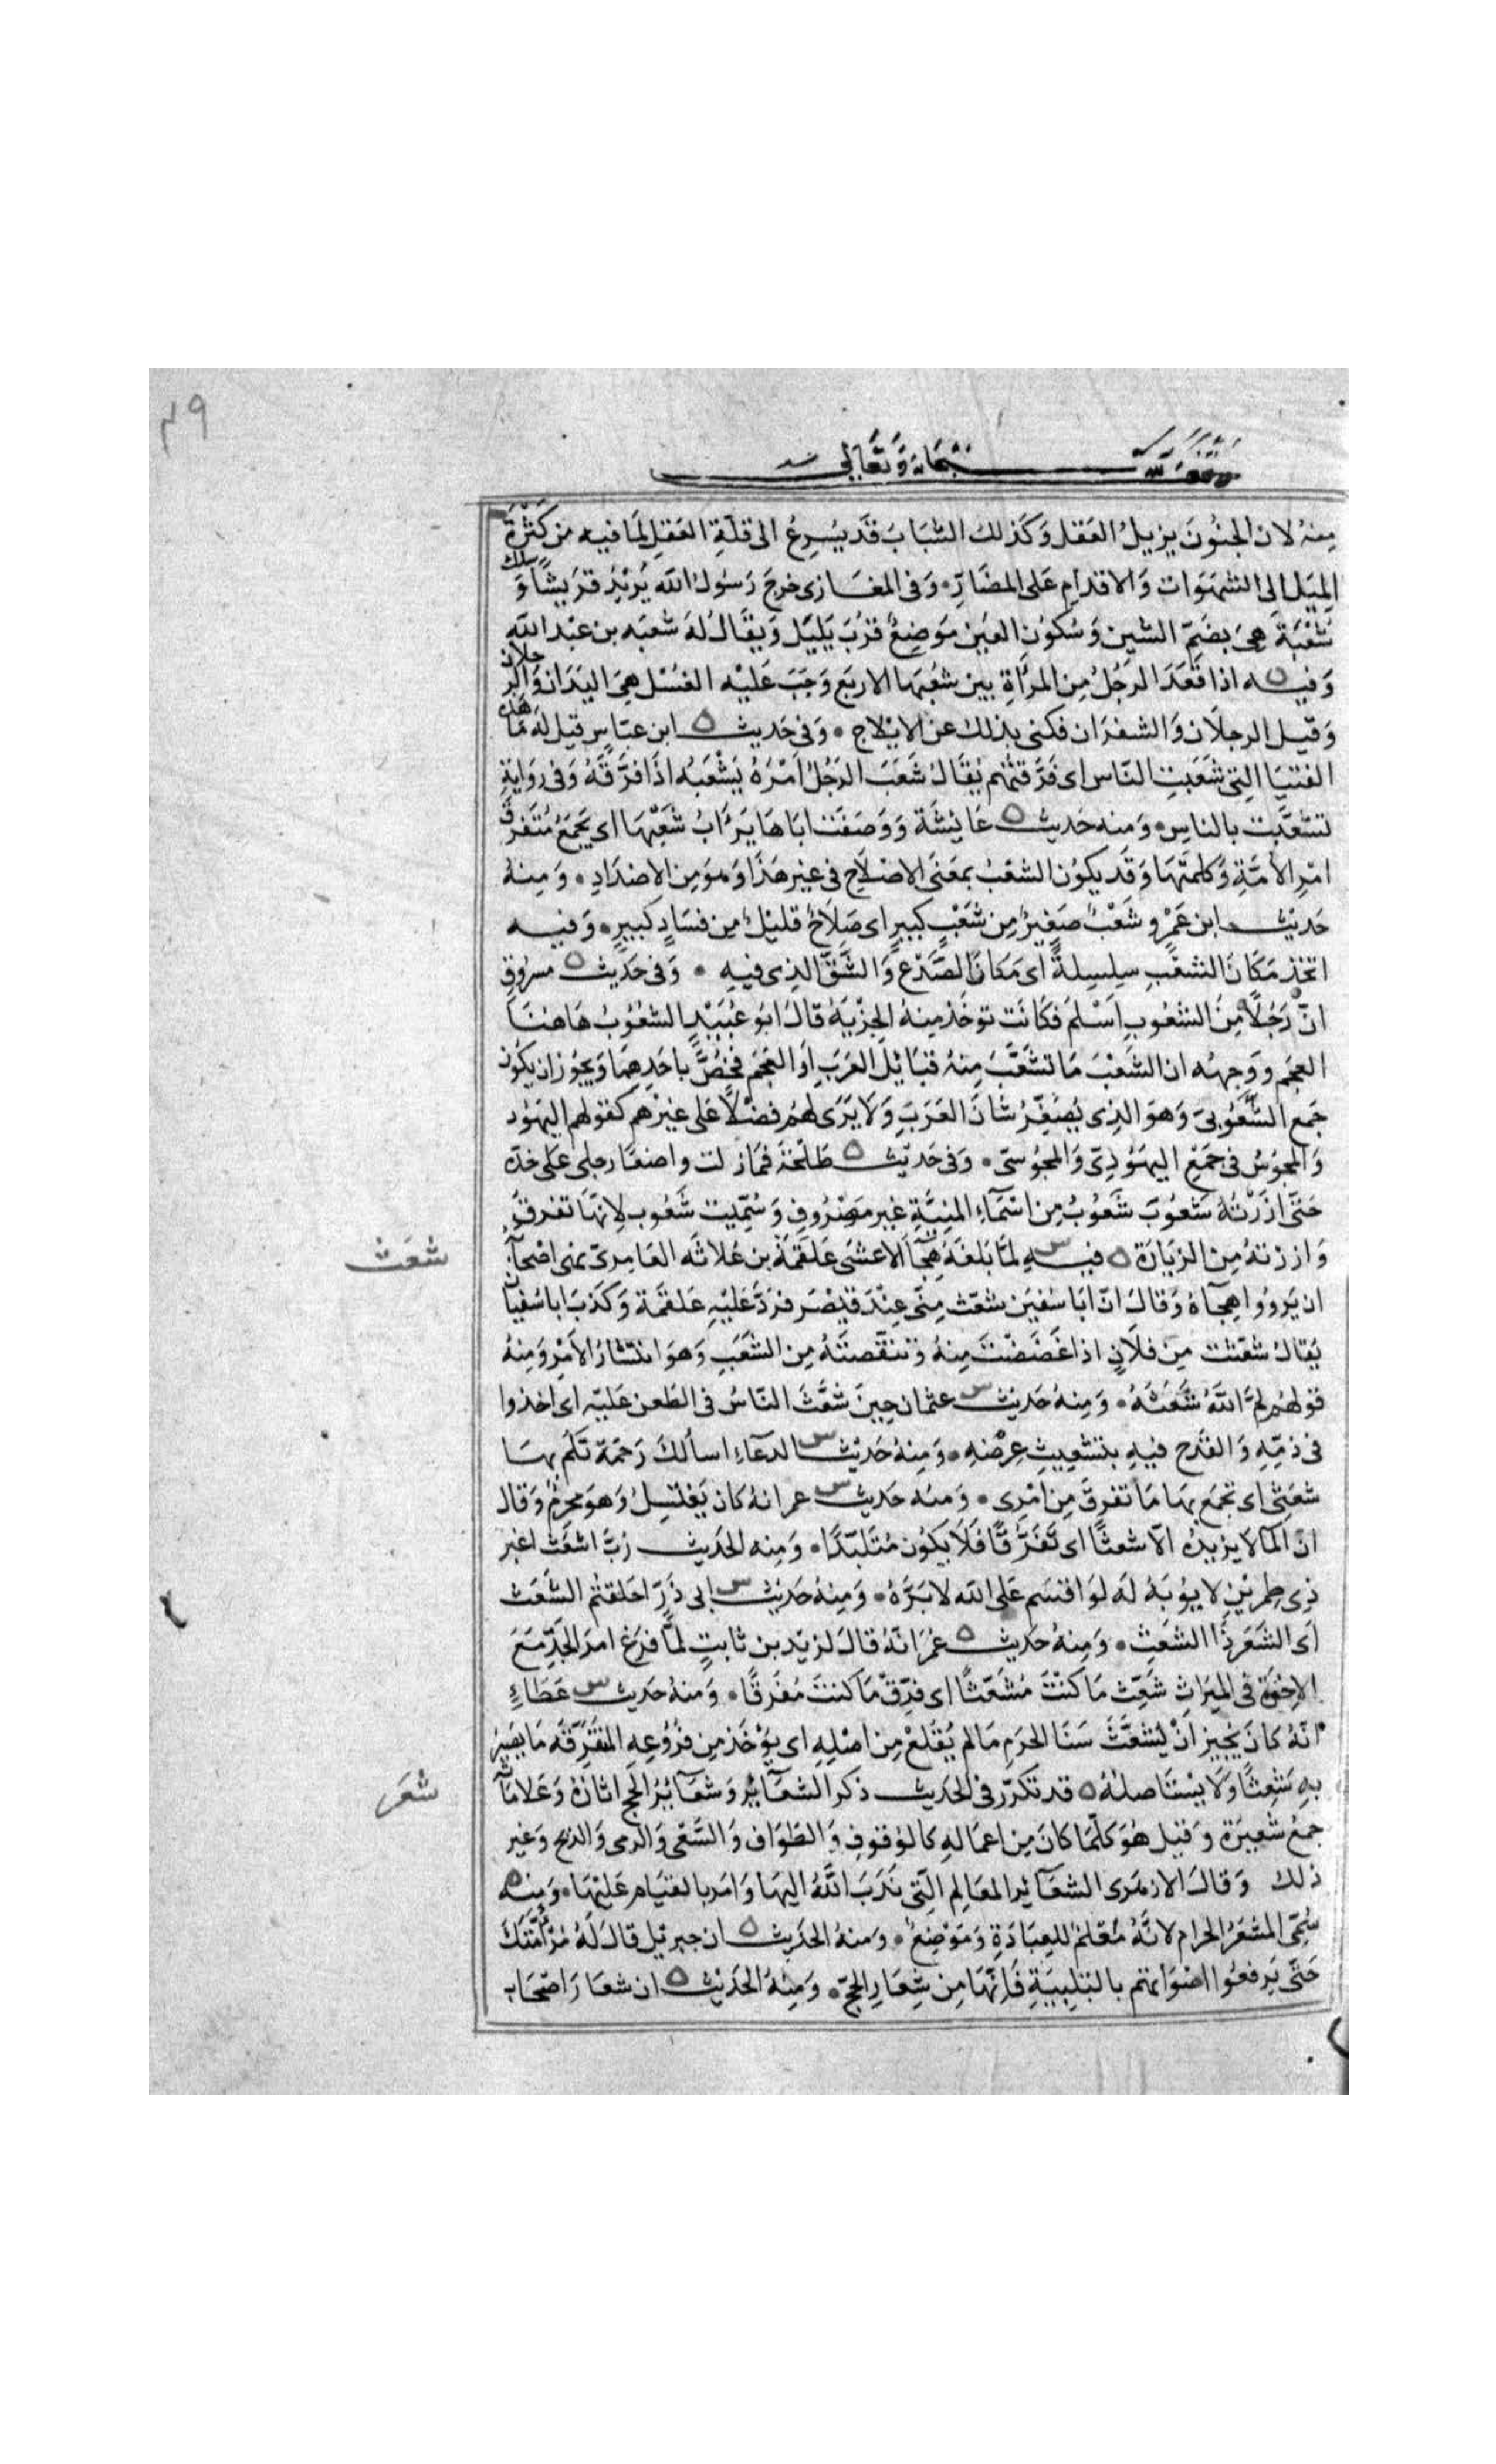 ٤٩
وقف لله سبحانه وتعالى
منهُ لان الجنُونَ يزيلُ العَقل وَكَذلك الشَبَابَ قَد يُسرِعُ الى قلَةِ العَقلِ لمَا فيه من كَثْرَةِ
المَيَل الى الشَهوَات وَالاقدامِ عَلى المضَارِّ • وَفى المغَازى خرجَ رَسُولُ الله يُرِيْدُ قرَيشًا وَسلك
شُعْبَةَ هىَ بضَمِّ الشين وَسُكوُن العَين مَوضِعُ قرُبَ يَلِيَل وَيقَالُ لهَ شعبَه بن عَبْد الله
وَفيه ه اذا قَعَدَ الرَجُلُ مِنَ المَرأَةِ بين شعُبَها الاربَع وَجَبَ عَليْه الغسُل هىَ اليَدَان وَالرجلان
وَقيل الرجلَان وَالشفرَان فكنى بذلك عن الايْلاج • وَفى حَديث ه ابن عبَاسٍ قيل لهَ مَا هَذه
الفتيَا التِى شعَبَتِ النّاس اى فَرَّقتْهُم يُقَالُ شَعَبَ الرَجُلُ اَمْرَهُ يَشْعَبُه اذَا فرَّقَهُ وَفى روَايَةِ
تشَعَّبَت بالناسِ • وَمنه حَديث ه عَائِشَةَ وَوَصَفَت ابَاهَا يَرْأَبُ شَعْبَهَا اى يَجمَعُ مُتَفَرقَ
امْرِ الأُمَّةِ وَكلمتَهَا وَقَد يكوُن الشعْبُ بمعَنَى الاصْلَاح فى غير هَذَا وَهوَ مِن الاضدَادِ • وَمِنهُ
حَدِيْث ابن عَمْرٍو شَعْبٌ صَغِيرٌ مِن شَعْبٍ كبيرٍ اى صَلَاحٌ قليْلٌ مِن فسَادٍ كبيرٍ • وَفيه
اتخَذ مَكَانَ الشعْبِ سِلسِلةً اى مَكانَ الصَّدْع وَالشَّقِّ الذِى فيهِ • وَفى حَديث ه مسرُوقٍ
انّ رَجُلًا مِنَ الشعُوبِ اَسْلَمَ فَكَانَت توخَذ مِنهُ الجِزْيَةُ قالَ ابُو عُبَيْدٍ الشعُوُبُ هَاهُنَا
العجَم وَوجهُه ان الشَعْبَ مَا تشَعَّبَ مِنهُ قبَايِلُ العَرَبِ اَو العَجَمِ فخُصَّ باحَدِهِمَا وَيجوُز ان يكوُن
جَمع الشُّعُوبىّ وَهوَ الذِى يُصَغِّرُ شَانَ العَرَبِ وَلَا يَرَى لهُم فَضْلًا عَلى غيرْهِم كقوَلهم اليَهوُد
وَالمجوُسُ فى جَمْعِ اليهَوُدِىّ وَالمجوُسىّ • وَفى حَديْث ه طَلْحَةَ فمَا زلت واضعًا رجلى عَلى خدّه
حَتّى ازَرْتهُ شَعُوبَ شَعُوْبُ مِن اسْمَآءِ المنيَّةِ غيرَ مَصْرُوفٍ وَسُمّيت شَعُوب لِانّهَا تفرقُ
وَازرتهُ مِنَ الزيَارَة ه فيه س لمَّا بَلغَهُ هِجَآءُ الاعشَى عَلقَمَةَ بن عُلاثَه العَامِرىّ نهى اصْحَابَهُ
شعَث
ان يَروُوا هِجَآءهُ وَقالَ انّ ابَا سُفيَن شعّثَ مِنّى عِنْدَ قيْصَر فرَدَّ عَليْهِ عَلقمَة وَكذّبَ ابا سُفيَان
يُقالُ شعّثت مِن فلَانٍ اذا غَضَضْتَ مِنهُ وَتنقّصتَهُ مِن الشَعَثِ وَهوَ انتشَارُ الاَمْرِ وَمِنهُ
قوْلهُم لمَّ اللهُ شَعَثَهُ • وَمِنهُ حَديْث س عثمان حِينَ شَعَّثَ النَاسُ فى الطَعن عَليْه اى اخذوا
فى ذمّهِ وَالقدْحِ فيهِ بتشعِيثِ عِرْضهِ • وَمِنهُ حَديْث س الدعَآءِ اسألكَ رَحمَةً تَلُمّ بهَا
شعَثِى اى تجمَع بهَا مَا تفرقَ مِن امْرِى • وَمنه حَديث س عمر انهُ كان يَغتسِلُ وَهوَ محرمٌ وَقالَ
انّ المَآ لا يزيدُه الّا شعثًا اى تَفَرُّقًا فَلَا يَكوُن مُتَلَبّدًا • وَمِنه الحَديث رُبَّ اشعَثَ اغبَر
ذِى طِمرَيْنِ لا يوُبَهُ لهَ لوَ اقسَم عَلى الله لابَرَّهُ • وَمِنهُ حَديْث س ابى ذَرّ احَلقتُم الشَعَث
اى الشَعَر ذَا الشعَثِ • وَمِنهُ حَديث ه عُمَرَ انّهُ قالَ لزيْد بن ثابتٍ لمَّا فرّغ امرَ الجَدِّ مَعَ
الاِخْوَة فى المِيرَاثِ شَعِّث مَا كنْتَ مُشَعّثًا اى فرّق مَا كنتَ مُفَرقًا • وَمنهُ حَديث س عَطَاءٍ
انّهُ كانَ يُجِيز انْ يُشَعَّثَ سَنَا الحَرَمِ مَا لم يُقلَعْ مِن اصْلِهِ اى يُؤْخَذ مِن فرُوُعِه المتَفَرّقَه مَا يصيْرُ
بهِ شَعِثًا وَلَا يسْتَاصلهُ ه قد تكرّرَ فى الحَديث ذكر الشعَآئِر وَشعَآئِرُ الحَج اثارُهُ وَعَلامَاتُه
شعَر
جمعُ شعيرَة وَقيل هُوَ كلّمَا كانَ مِن اعمَالهِ كالوُقوُفِ وَالطَوَاف وَالسَّعْى وَالرمى وَالذبح وَغير
ذلك وَقالَ الازهَرى الشعَآئِر المعَالم الّتِى نَدَبَ اللهُ اليهَا وَامَر بالقيَام عَليْهَا • وَمِنه ه
سُمّىَ المشعَرُ الحرام لانّهُ مَعْلمٌ للعِبَادَةِ وَمَوْضِعٌ • وَمنهُ الحَديث ه ان جبرئيل قال لَهُ مُرْ اُمّتَكَ
حَتّى يَرفعُوا اصْوَاتهم بالتلبِيَةِ فَانّهَا مِن شِعَارِ الحجّ • وَمِنهُ الحَديْث ه ان شعَارَ اصْحَاب